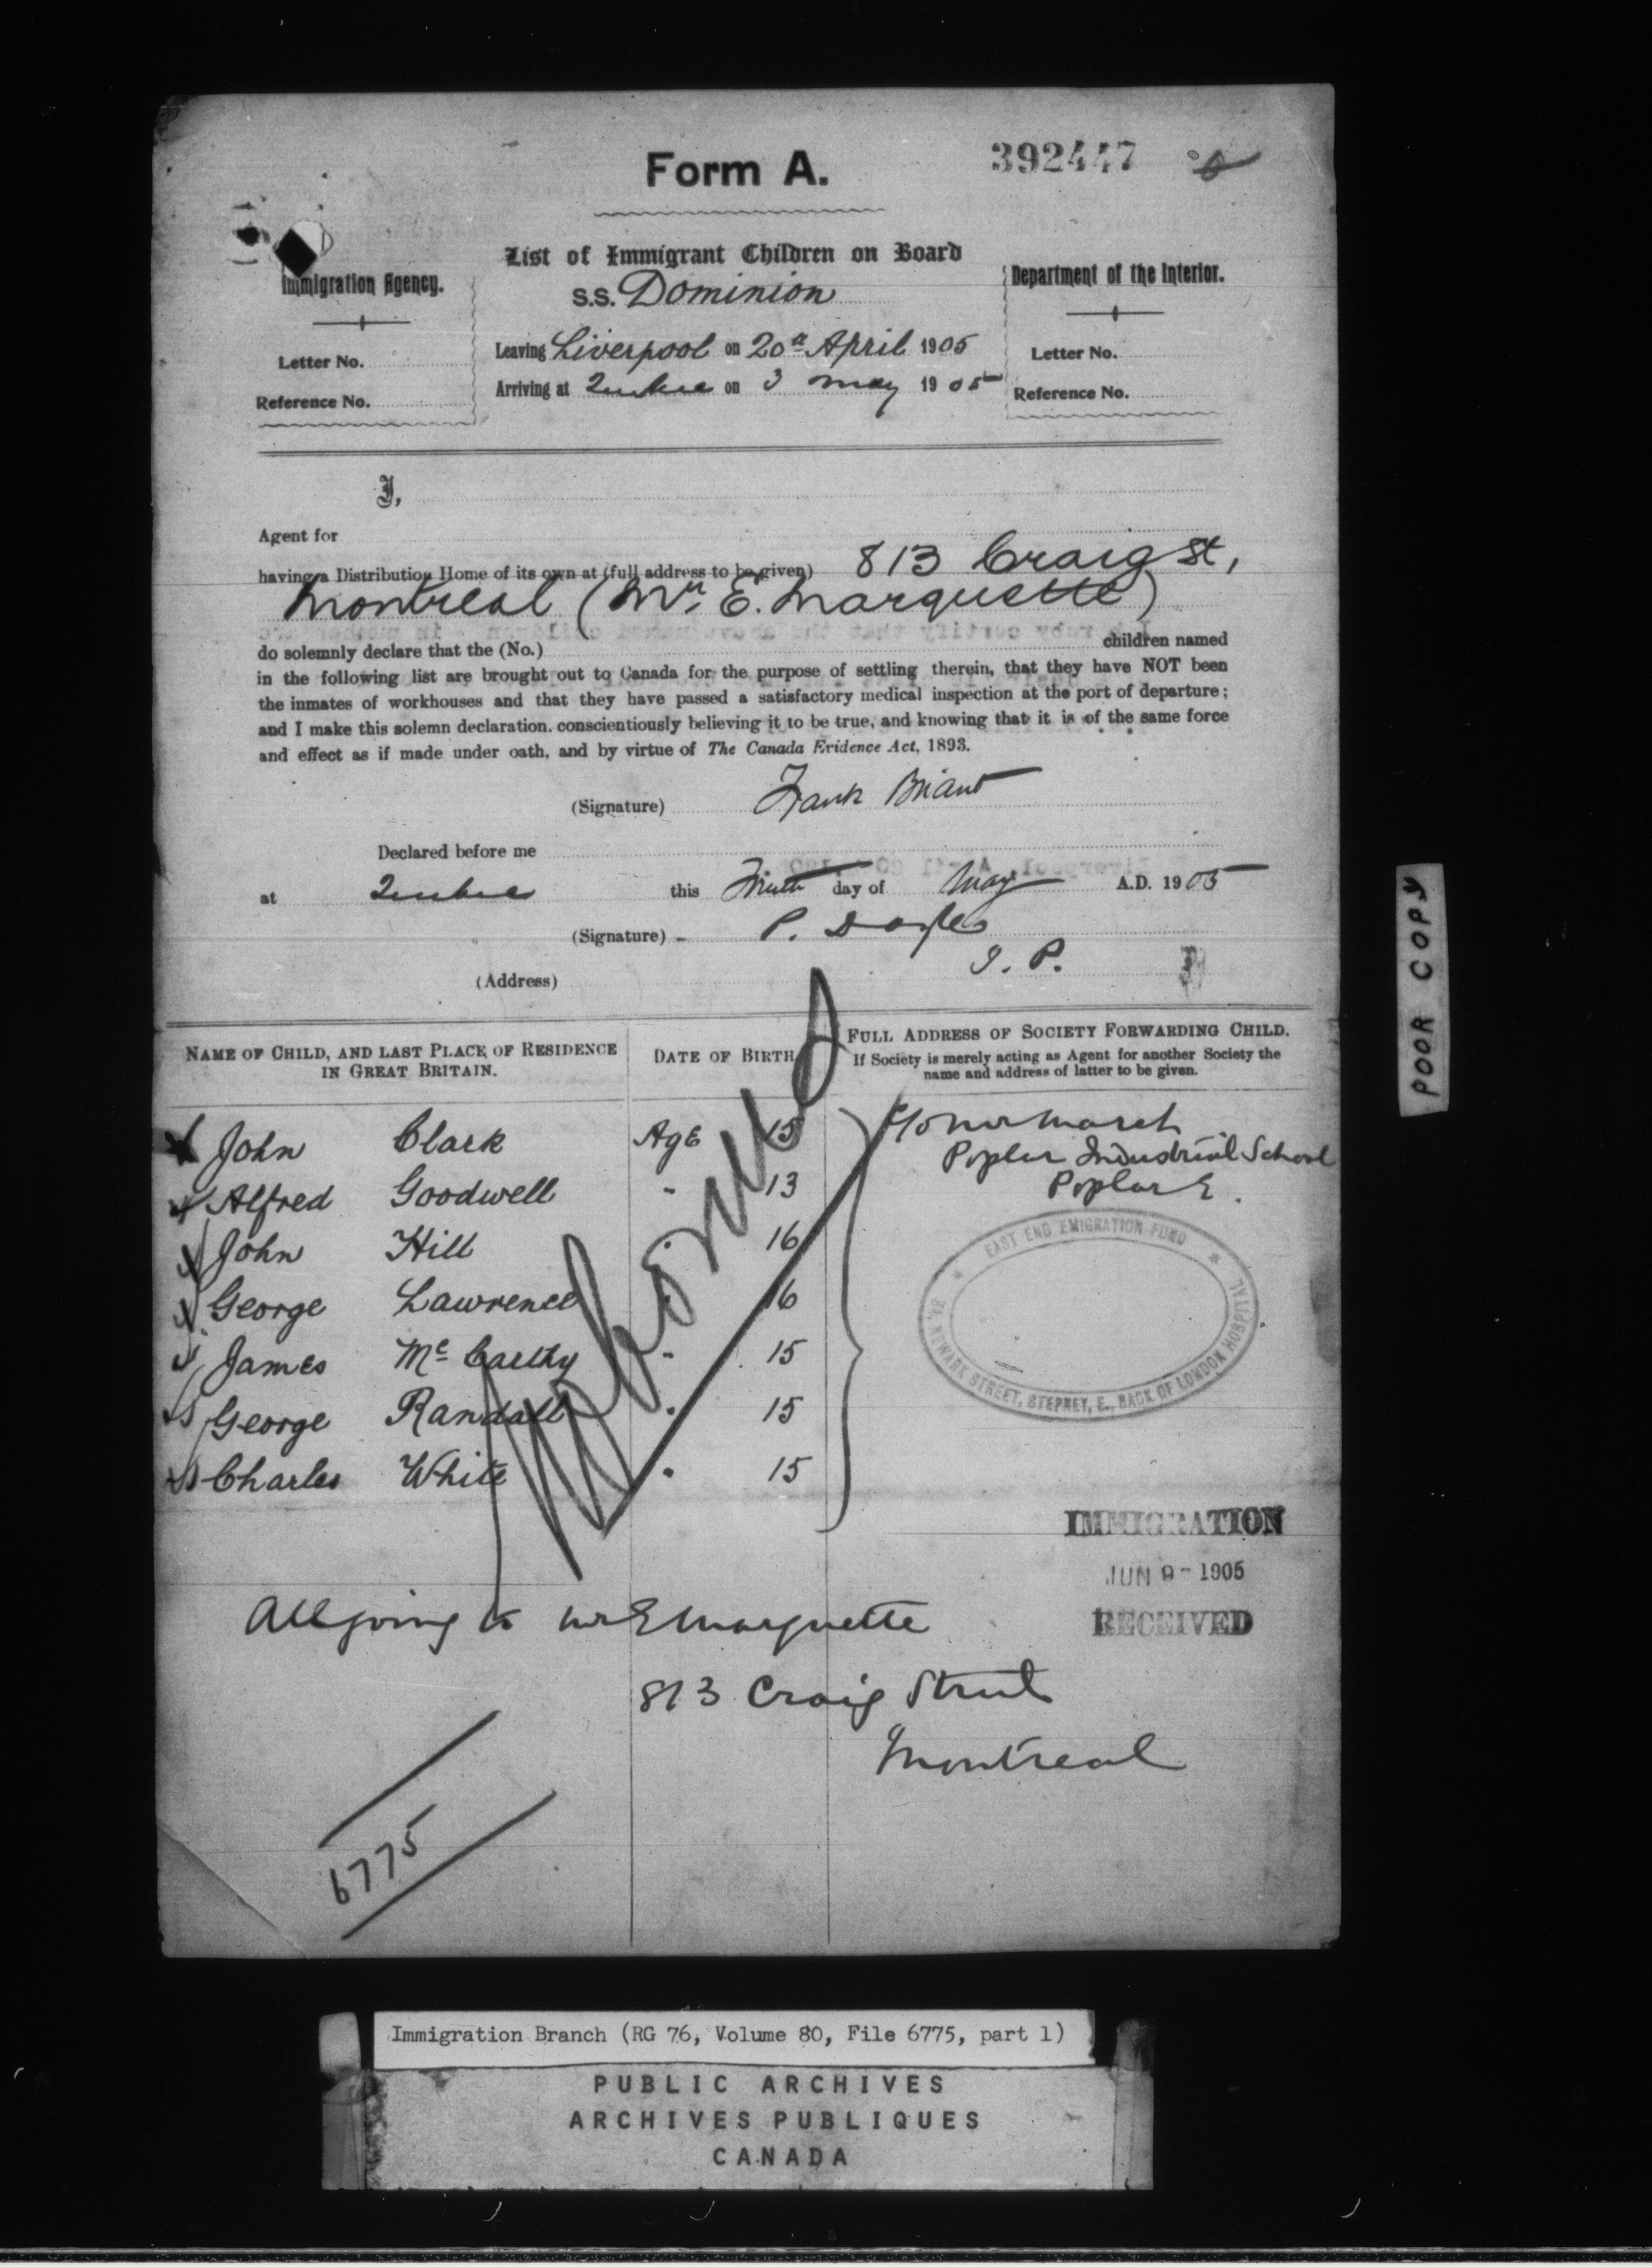 Form A.
392447
List of Immigrant Children on Board
S.S. Dominion
Immigration Agency.
Department of the Interior.
Leaving Liverpool on 20th April 1905
Letter No.
Letter No.
Arriving at Quebec on 3 May 1905
Reference No.
Reference No.
I,
Agent for
having a Distribution Home of its own at (full address to be given) 813 Craig St,
Montreal (Mr. E. Marquette)
do solemnly declare that the (No.) children named
in the following list are brought out to Canada for the purpose of settling therein, that they have NOT been
the inmates of workhouses and that they have passed a satisfactory medical inspection at the port of departure;
and I make this solemn declaration, conscientiously believing it to be true, and knowing that it is of the same force
and effect as if made under oath, and by virtue of The Canada Evidence Act, 1893.
(Signature) Frank Briant
Declared before me
at Quebec this day of May A.D. 1905
(Signature) P. Doyle
J. P.
(Address)
NAME OF CHILD, AND LAST PLACE OF RESIDENCE IN GREAT BRITAIN.
DATE OF BIRTH
FULL ADDRESS OF SOCIETY FORWARDING CHILD.
If Society is merely acting as Agent for another Society the
name and address of latter to be given.
John Clark Age 15
Alfred Goodwell " 13
John Hill " 16
George Lawrence " 16
James McCarthy " 15
George Randall " 15
Charles White " 15
c/o Mr March
Poplar Industrial School
Poplar E.
EAST END EMIGRATION FUND
24, NEWARK STREET, STEPNEY, E., BACK OF LONDON HOSPITAL
IMMIGRATION
JUN 9 - 1905
RECEIVED
All going to Mr E Marquette
813 Craig Street
Montreal
6775
POOR COPY
Immigration Branch (RG 76, Volume 80, File 6775, part 1)
PUBLIC ARCHIVES
ARCHIVES PUBLIQUES
CANADA